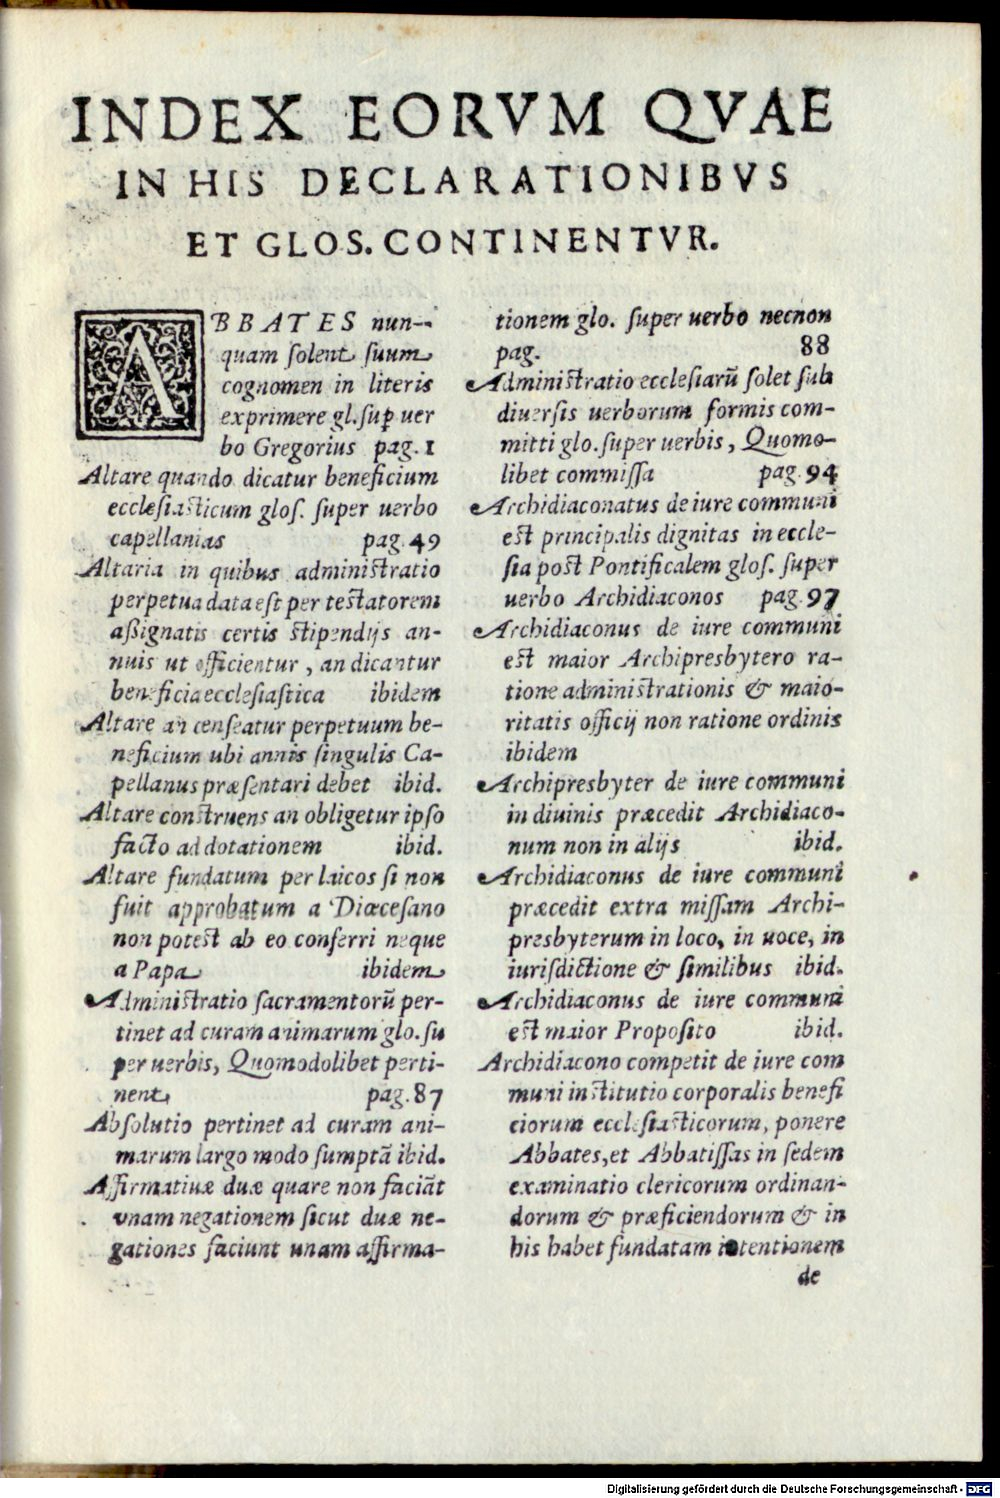 INDEX EORVM QVAE
IN HIS DECLARATIONIBVS
ET GLOS. CONTINENTVR.
ABBATES nun-
quam solent suum
cognomen in literis
exprimere gl. sup̱ uer
bo Gregorius pag. 1
Altare quando dicatur beneficium
ecclesiasticum glos. super uerbo
capellanias pag. 49
Altaria in quibus administratio
perpetua data est per testatorem
aßignatis certis stipendijs an-
nuis ut officientur, an dicantur
beneficia ecclesiastica ibidem
Altare an censeatur perpetuum be-
neficium ubi annis singulis Ca-
pellanus præsentari debet ibid.
Altare construens an obligetur ipso
facto ad dotationem ibid.
Altare fundatum per laicos si non
fuit approbatum a Diœcesano
non potest ab eo conferri neque
a Papa ibidem
Administratio sacramentorũ per-
tinet ad curam animarum glo. su
per uerbis, Quomodolibet perti-
nent, pag. 87
Absolutio pertinet ad curam ani-
marum largo modo sumptã ibid.
Affirmatiuæ duæ quare non faciãt
vnam negationem sicut duæ ne-
gationes faciunt unam affirma-
tionem glo. super uerbo necnon
pag. 88
Administratio ecclesiarũ solet sub
diuersis uerborum formis com-
mitti glo. super uerbis, Quomo-
libet commissa pag. 94
Archidiaconatus de iure communi
est principalis dignitas in eccle-
sia post Pontificalem glos. super
uerbo Archidiaconos pag. 97
Archidiaconus de iure communi
est maior Archipresbytero ra-
tione administrationis & maio-
ritatis officij non ratione ordinis
ibidem
Archipresbyter de iure communi
in diuinis præcedit Archidiaco-
num non in alijs ibid.
Archidiaconus de iure communi
præcedit extra missam Archi-
presbyterum in loco, in uoce, in
iurisdictione & similibus ibid.
Archidiaconus de iure communi
est maior Proposito ibid.
Archidiacono competit de iure com
muni institutio corporalis benefi
ciorum ecclesiasticorum, ponere
Abbates, et Abbatissas in sedem
examinatio clericorum ordinan-
dorum & præficiendorum & in
his habet fundatam intentionem
de
Digitalisierung gefördert durch die Deutsche Forschungsgemeinschaft - DFG